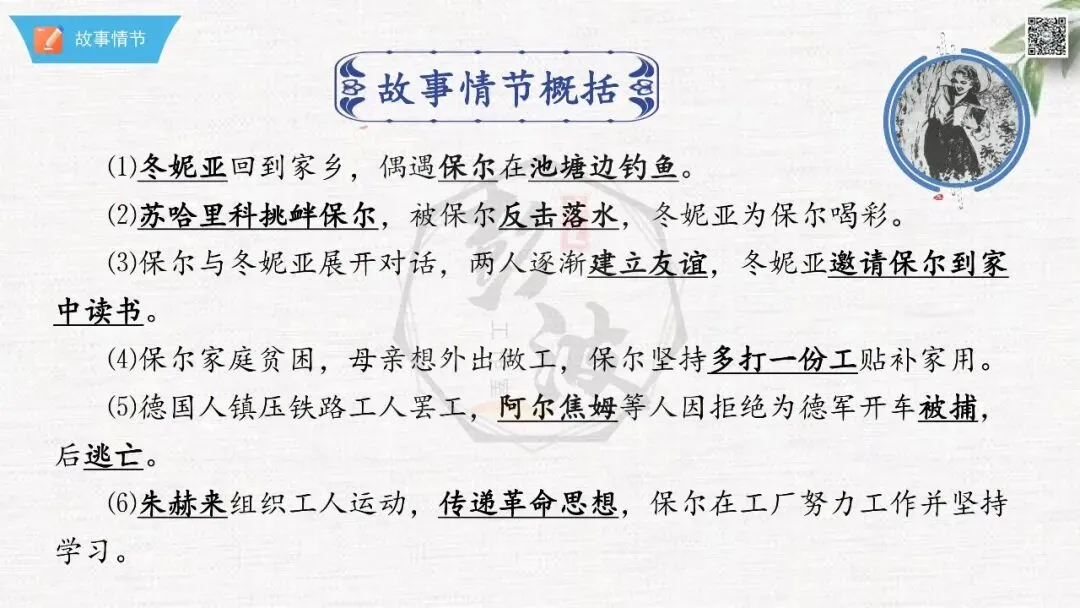 故事情节
故事情节概括
(1)冬妮亚回到家乡，偶遇保尔在池塘边钓鱼。
(2)苏哈里科挑衅保尔，被保尔反击落水，冬妮亚为保尔喝彩。
(3)保尔与冬妮亚展开对话，两人逐渐建立友谊，冬妮亚邀请保尔到家
中读书。
(4)保尔家庭贫困，母亲想外出做工，保尔坚持多打一份工贴补家用。
(5)德国人镇压铁路工人罢工，阿尔焦姆等人因拒绝为德军开车被捕，
后逃亡。
(6)朱赫来组织工人运动，传递革命思想，保尔在工厂努力工作并坚持
学习。